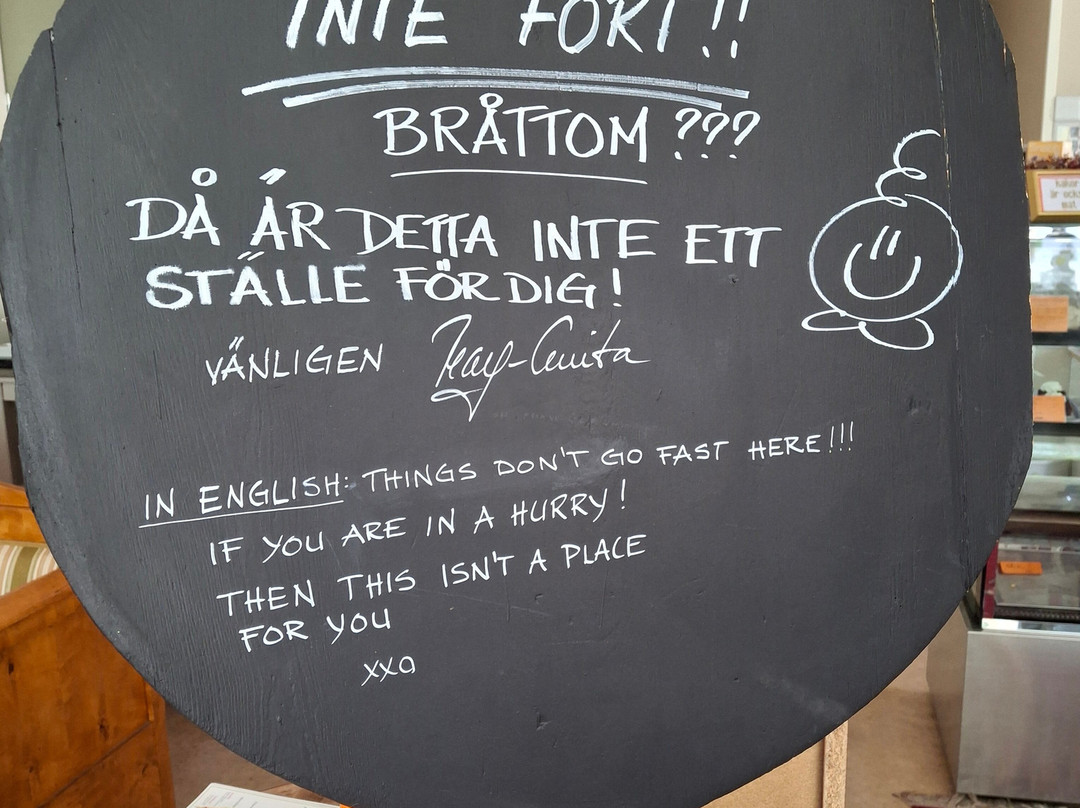 INTE FORT!!
BRÅTTOM ???
DÅ ÄR DETTA INTE ETT
STÄLLE FÖR DIG!
VÄNLIGEN Kay-Anita
IN ENGLISH: THINGS DON'T GO FAST HERE!!!
IF YOU ARE IN A HURRY!
THEN THIS ISN'T A PLACE
FOR YOU
xxo